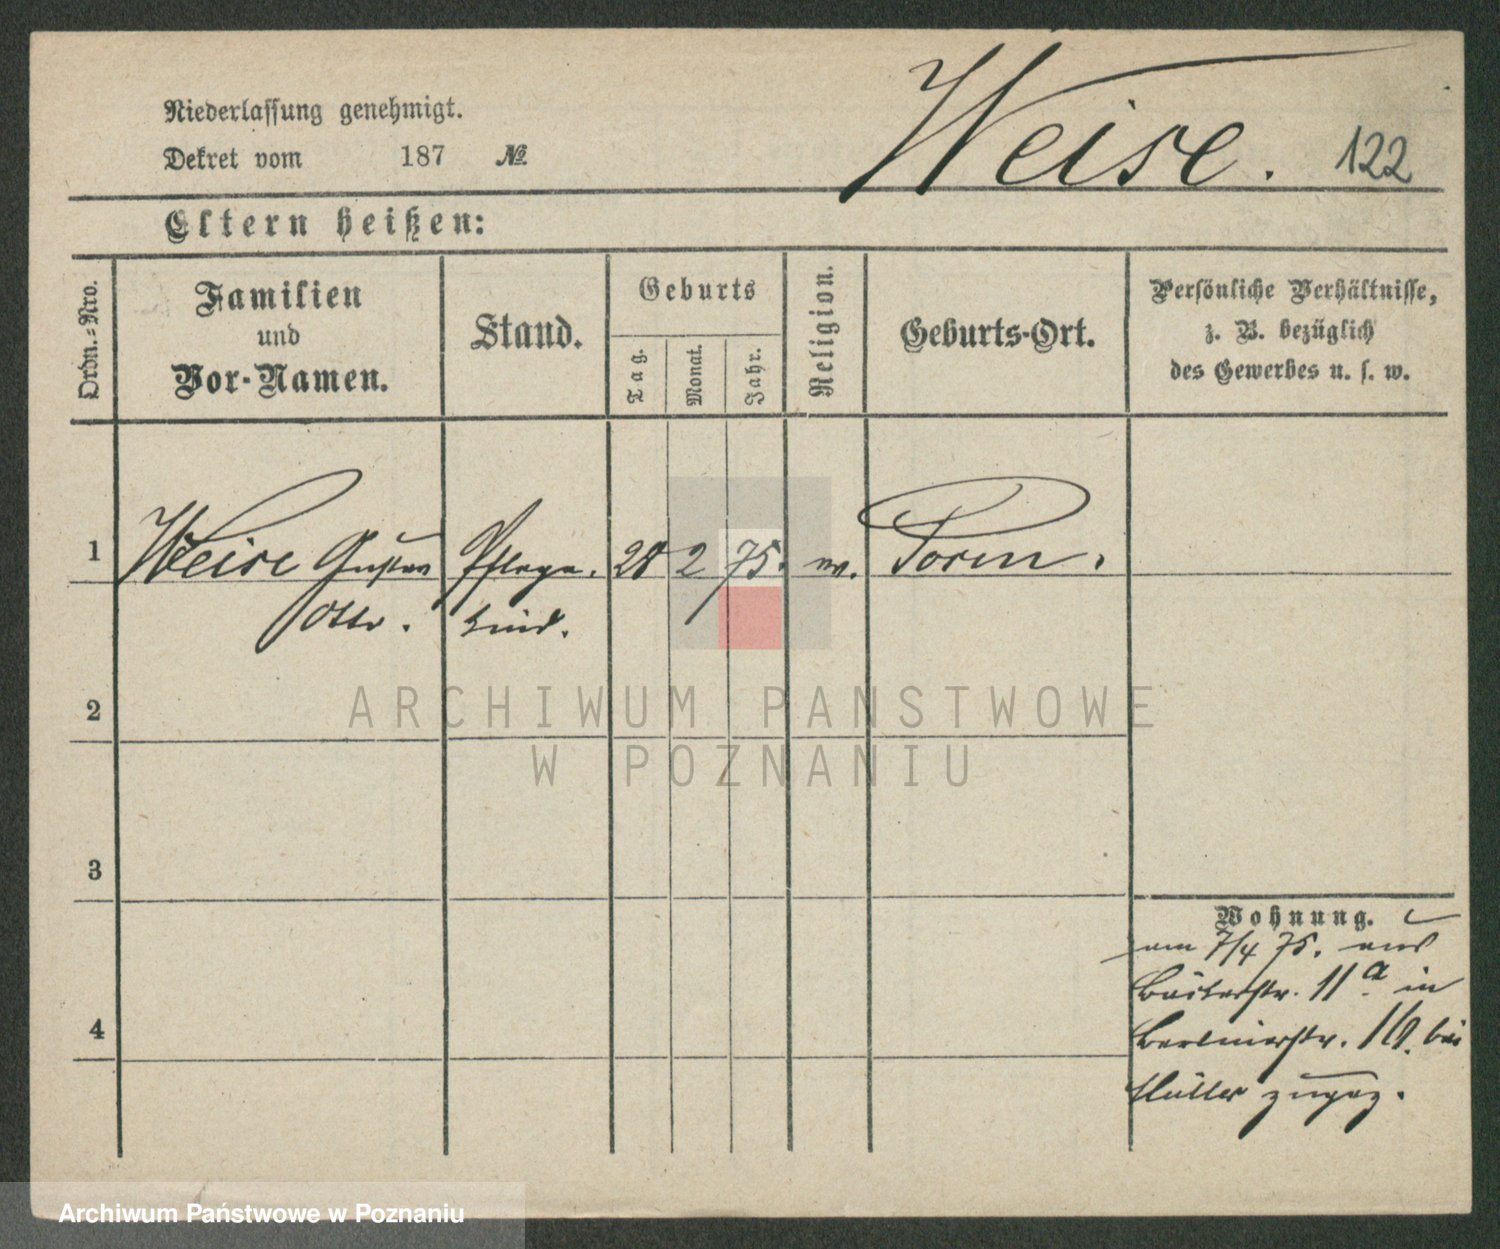 Weise. 122
Niederlassung genehmigt.
Dekret vom 187 №
Eltern heißen:
Ordn.-Nro.
Familien
und
Vor-Namen.
Stand.
Geburts
Tag.
Monat.
Jahr.
Religion.
Geburts-Ort.
Persönliche Verhältnisse,
z. B. bezüglich
des Gewerbes u. s. w.
1 Weise Gustav Pflege. 28 2 75. ev. Posen.
Otto. kind.
2
3
4
Wohnung.
am 7/4 75. aus
Bäckerstr. 11a in
Berlinerstr. 16. bei
Müller zugez.
ARCHIWUM PANSTWOWE
W POZNANIU
Archiwum Państwowe w Poznaniu